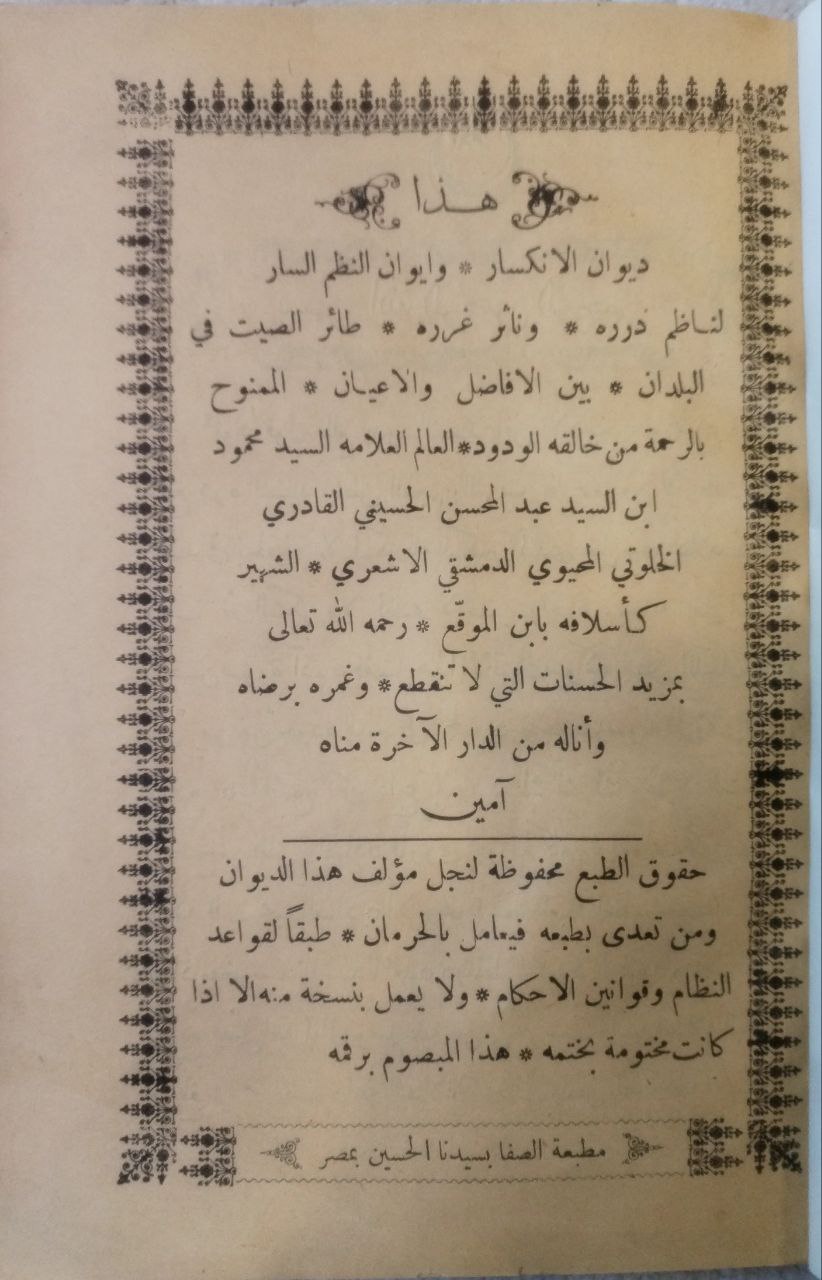 هذا
ديوان الانكسار * وايوان النظم السار
لناظم دُرره * وناثر غرره * طائر الصيت في
البلدان * بين الافاضل والاعيان * الممنوح
بالرحمة من خالقه الودود * العالم العلامه السيد محمود
ابن السيد عبد المحسن الحسيني القادري
الخلوتي المحيوي الدمشقي الاشعري * الشهير
كأسلافه بابن الموقّع * رحمه الله تعالى
بمزيد الحسنات التي لا تنقطع * وغمره برضاه
وأناله من الدار الآخرة مناه
آمين
حقوق الطبع محفوظة لنجل مؤلف هذا الديوان
ومن تعدى بطبعه فيعامل بالحرمان * طبقاً لقواعد
النظام وقوانين الاحكام * ولا يعمل بنسخة منه الا اذا
كانت مختومة بختمه * هذا المبصوم برقمه
مطبعة الصفا بسيدنا الحسين بمصر